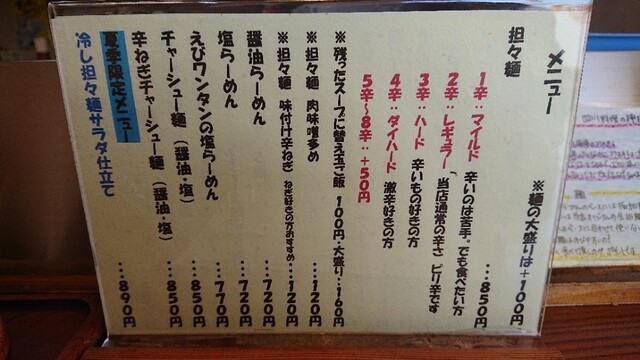 メニュー
※麺の大盛りは+100円
担々麺 …850円
1辛‥マイルド 辛いのは苦手。でも食べたい方
2辛‥レギュラー 当店通常の辛さ ピリ辛です
3辛‥ハード 辛いもの好きの方
4辛‥ダイハード 激辛好きの方
5辛~8辛‥+50円
※残ったスープに替え玉ご飯 100円・大盛り‥160円
※担々麺 肉味噌多め …120円
※担々麺 味付け辛ねぎ ねぎ好きの方おすすめ…120円
醤油らーめん …720円
塩らーめん …720円
えびワンタンの塩らーめん …770円
チャーシュー麺(醤油・塩) …850円
辛ねぎチャーシュー麺(醤油・塩) …850円
夏季限定メニュー
冷し担々麺サラダ仕立て …890円